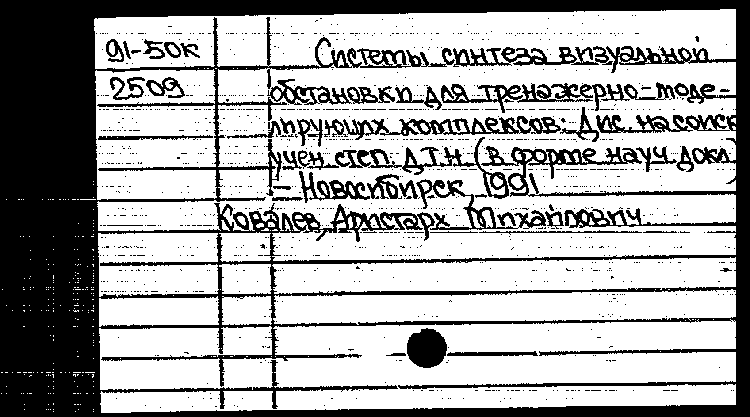 91-50к Системы синтеза визуальной
2509 обстановки для тренажерно-моде-
лирующих комплексов: Дис. на соиск
учен. степ. д.т.н. (в форме науч. докл)
- Новосибирск, 1991
Ковалев, Аристарх Михайлович.